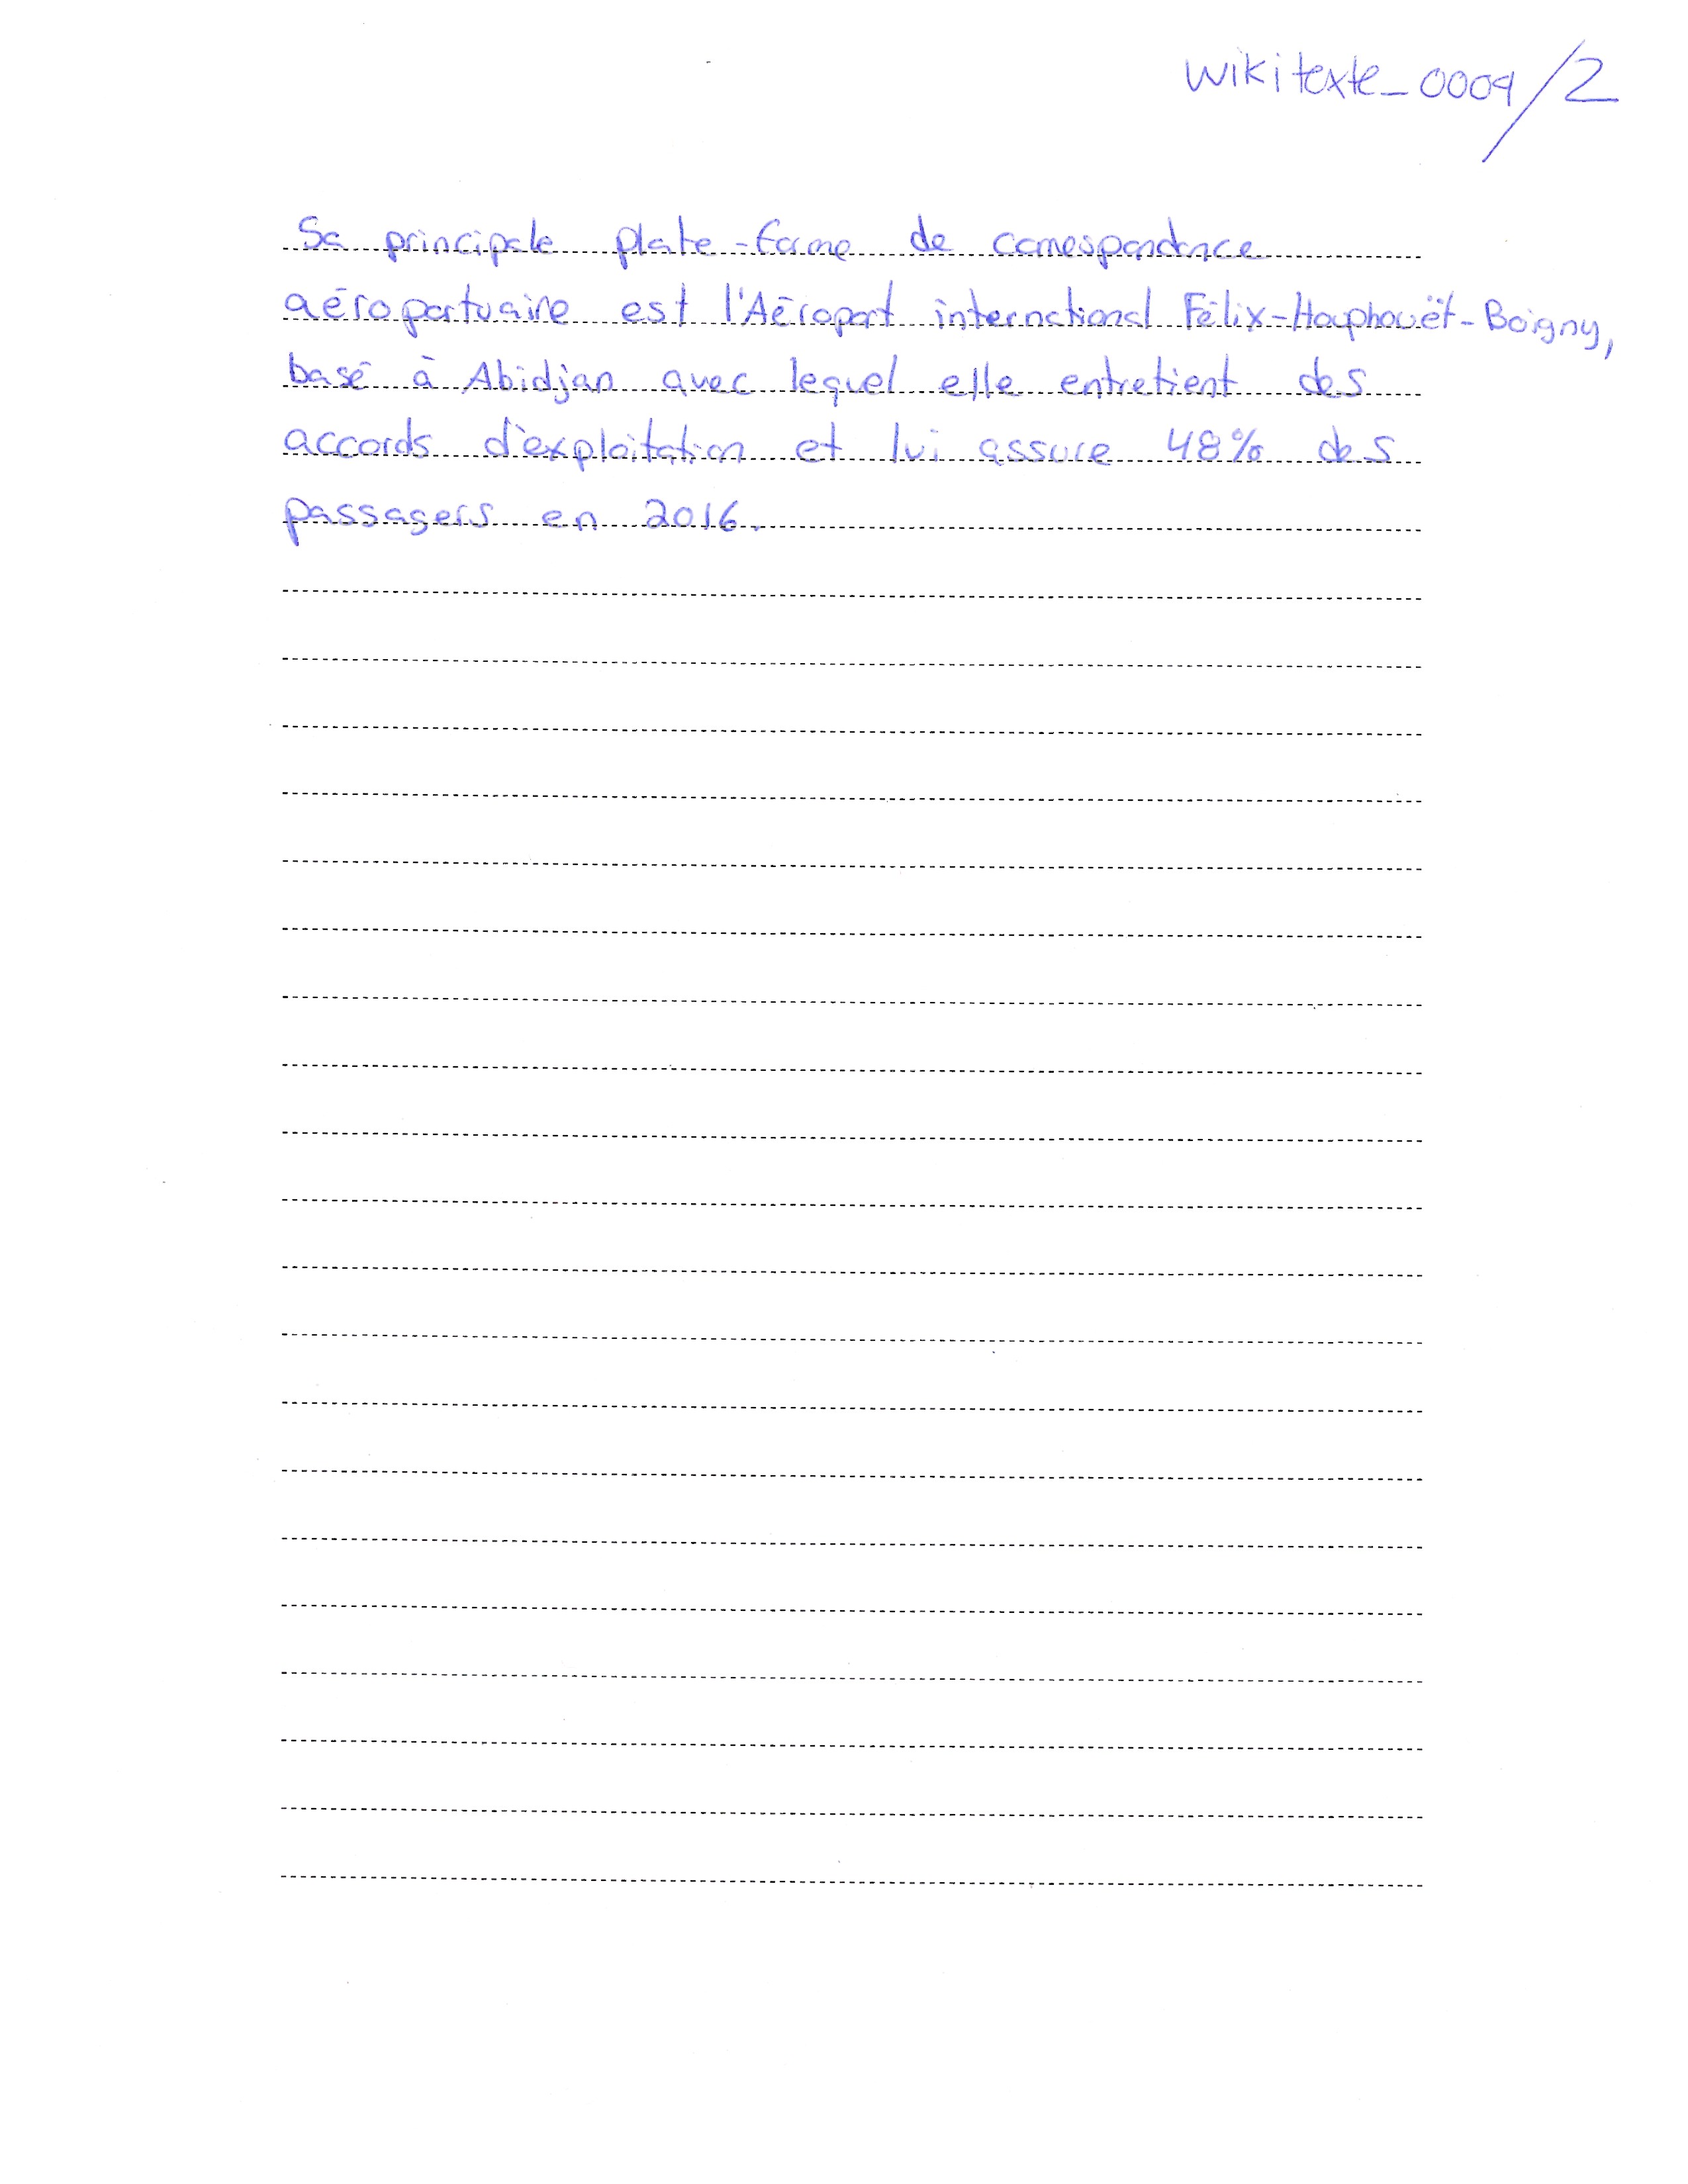 wikitexte_0009/2
Sa principale plate-forme de correspondance
aéroportuaire est l'Aéroport international Félix-Houphouët-Boigny,
basé à Abidjan avec lequel elle entretient des
accords d'exploitation et lui assure 48% des
passagers en 2016.